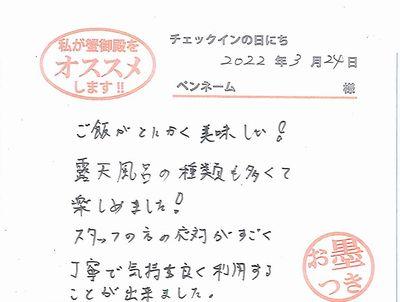 私が蟹御殿を
オススメ
します!!
チェックインの日にち
2022 年 3 月 24 日
ペンネーム 様
ご飯がとにかく美味しい!
露天風呂の種類も多くて
楽しめました!
スタッフの方の応対がすごく
丁寧で気持ち良く利用する
ことが出来ました。
お墨
つき